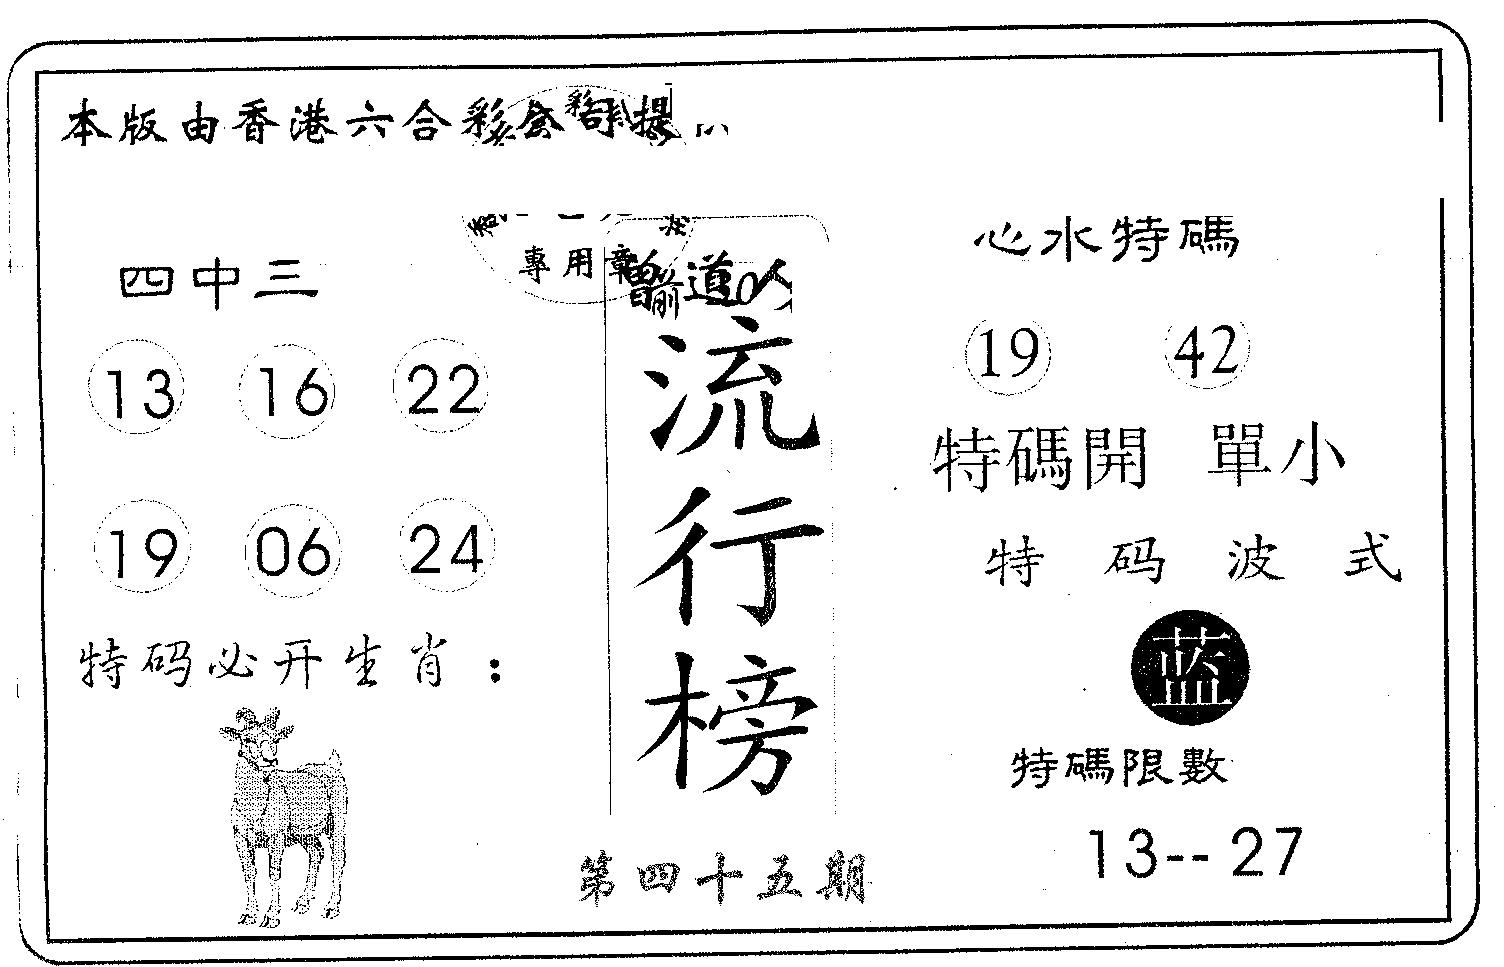 本版由香港六合彩公司提
專用章
曾道人
四中三
13 16 22
19 06 24
特码必开生肖：
流行榜
第四十五期
心水特碼
19 42
特碼開 單小
特码波式
蓝
特碼限數
13-- 27